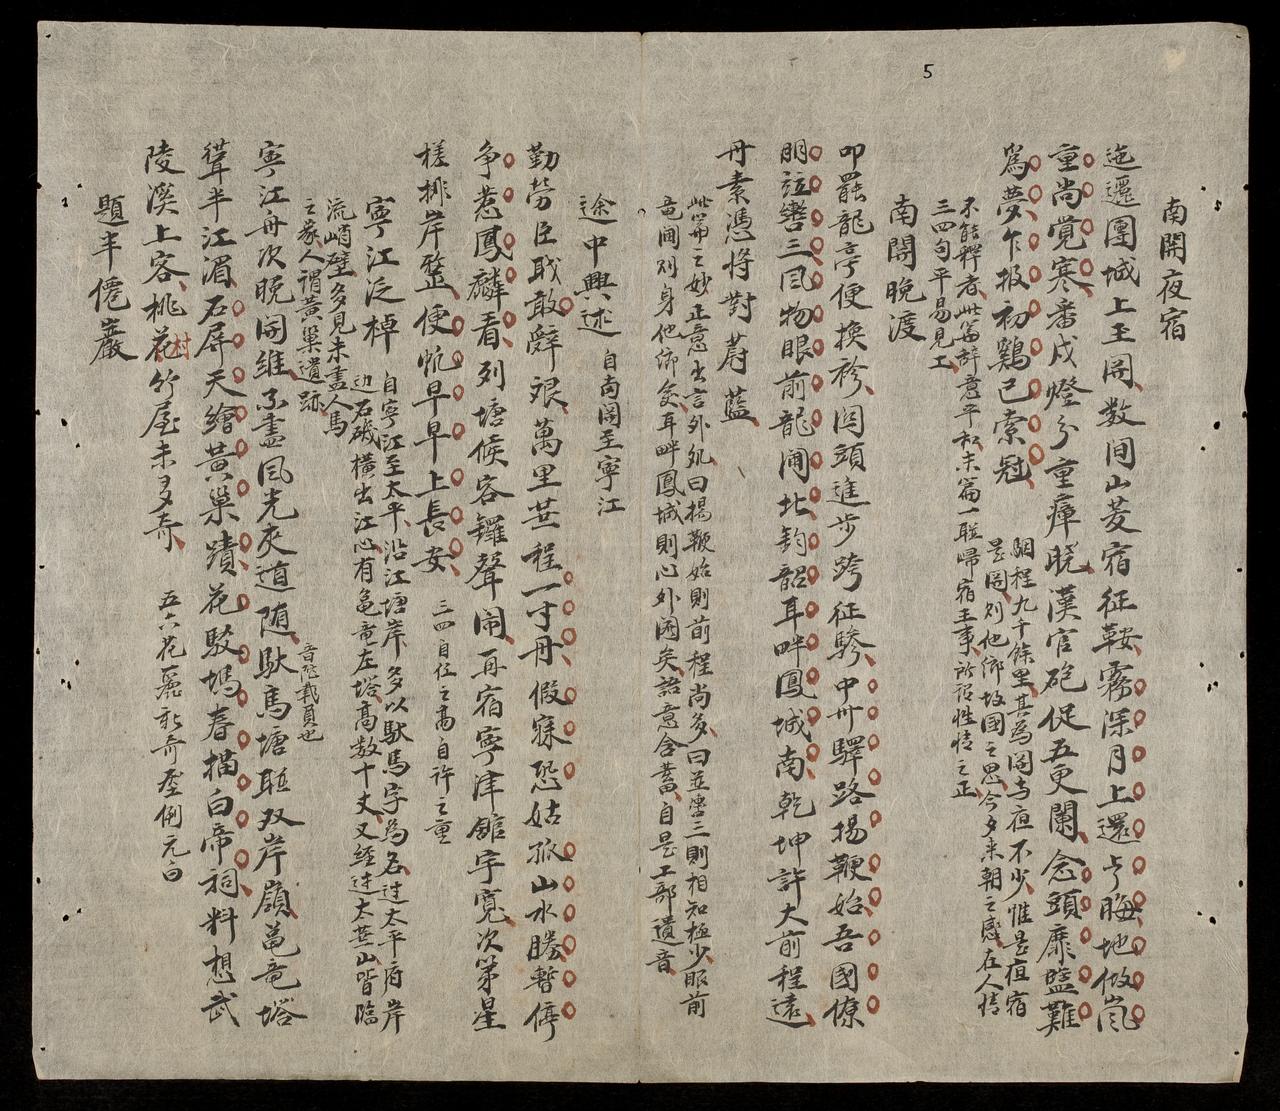 5
南關夜宿
迤邐團城上玉関数间山菱宿征鞍霧深月上還嫌晦地做嵐
重尚覺寒番戍燈分重瘴晓漢官砲促五更闌念頭靡盬難
爲夢乍报初鷄已索冠
程九千餘里其為関与宿不少惟是宿宿
是関别他鄉故國之思今夕来朝之感在人情
不能釋者此篇辞意平和末篇一聯歸宿王事所谓性情之正
三四句平易見工
南関晚渡
叩罷龍亭便換衫関頭進步跨征驂中州驛路揚鞭始吾國僚
朋並轡三風物眼前龍闸北鈞韶耳畔鳳城南乾坤許大前程遠
丹素憑将對蔚藍
此篇之妙正意出言外夘曰揚鞭始則前程尚多曰並轡三則相知極少眼前
竜闸别身他鄉矣耳畔鳳城則心外国矣語意含蓄自是工部遺音
途中興述 自南関至寧江
勤劳臣職敢辭艰萬里𦮶程一寸丹假寐恐姑孤山水勝暫停
争惹鳳麟看列塘候客鑼聲闹再宿寧津舘宇寬次第星
槎排岸整便帆早早上長安 三四自任之高自許之重
寧江泛棹 自寧江至太平沿江塘岸多以馱馬字為名过太平府岸
边石磯橫出江心有龜竜左塔高数十丈又经过太𦮶山皆臨
流峭壁多見未盡人馬
之象人謂黃巢遺跡
寧江舟次晚開維不盡風光夾道随馱馬塘聯双岸嶺龜竜塔
聳半江湄石屏天繪黃巢蹟花駁塢春描白帝祠料想武
音陀載負也
陵溪上客桃花竹屋未多奇 五六花麗新奇𡉏例元白
村
題半僊巖